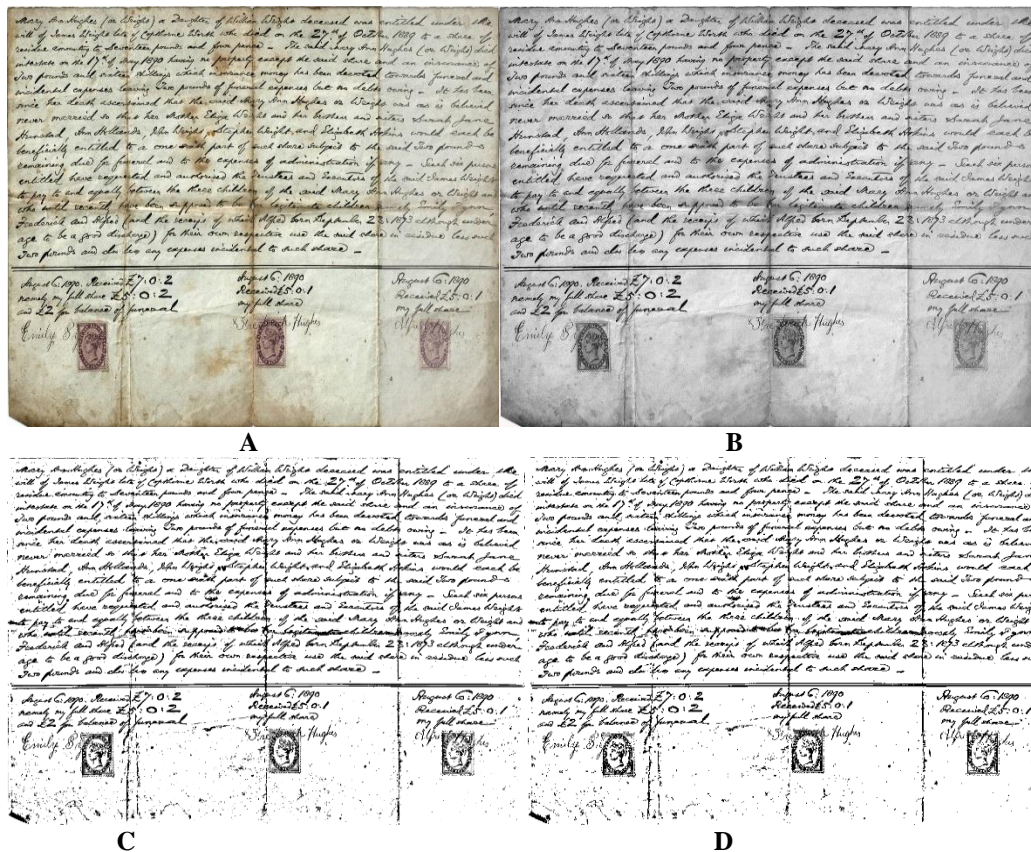 Mary Ann Hughes (or Wright) a Daughter of William Wright deceased was entitled under the
will of James Wright late of Copthorne Worth who died on the 27th of October 1889 to a share of
residue amounting to Seventeen pounds and four pence - The said Mary Ann Hughes (or Wright) died
intestate on the 17th of May 1890 having no property except the said share and an insurance of
Two pounds and sixteen shillings which insurance money has been devoted towards funeral and
incidental expenses leaving Two pounds of funeral expenses but no debts owing - It has been
since her death ascertained that the said Mary Ann Hughes or Wright was as is believed
never married so that her Mother Eliza Wright and her brothers and sisters Sarah Jane
Ann Hollands, John Wright, Stephen Wright, and Elizabeth would each be
beneficially entitled to a one sixth part of such share subject to the said Two pounds
remaining due for funeral and to the expenses of administration if any - Such six persons
entitled have requested and authorised the Trustees and Executors of the said James Wright
to pay to and equally between the three children of the said Mary Ann Hughes or Wright
who until recently have been supposed to be her legitimate children namely Emily
Frederick and Alfred (and the receipt of which Alfred born September 23: 1873 although under
age to be a good discharge) for their own respective use the said share in residue less such
Two pounds and also less any expenses incidental to such share -
August 6: 1890. Received £7:0:2
namely my full share £5:0:2
and £2 for balance of funeral
Emily
August 6: 1890
Received £5:0:1
my full share
Frederick Hughes
August 6: 1890
Received £5:0:1
my full share
Alfred Hughes
A
B
C
D